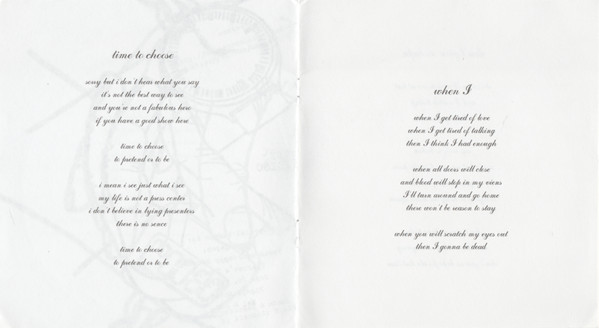 time to choose
sorry but i don't hear what you say
it's not the best way to see
and you're not a fabulous hero
if you have a good show here
time to choose
to pretend or to be
i mean i see just what i see
my life is not a press center
i don't believe in lying presenters
there is no sence
time to choose
to pretend or to be
when I
when I get tired of love
when I get tired of talking
then I think I had enough
when all doors will close
and blood will stop in my viens
I'll turn around and go home
there won't be reason to stay
when you will scratch my eyes out
then I gonna be dead